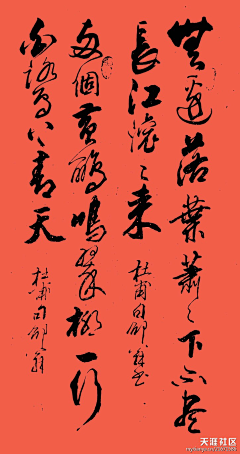 無邊落葉蕭〻下不盡
長江滾〻來
杜甫句邵翁書
兩個黃鸝鳴翠柳一行
白鷺上青天
杜甫句邵翁
天涯社区